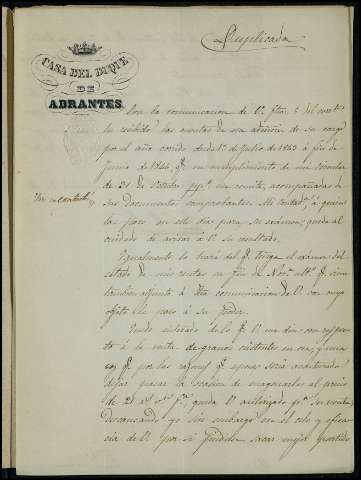 Duplicada
CASA DEL DUQUE
DE
ABRANTES.
Con la comunicacion de V. fha. 5 del
he recibido las cuentas de esa admon. de su cargo
por el año corrido desde 1.º de Julio de 1843 á fin de
Junio de 1844, q.e en cumplimiento de mi circular
de 21 de Octubre me remite, acompañadas de
sus documentos comprobantes. Mi Contad.a á quien
las paso en este dia para su exámen, queda al
cuidado de avisar á V. su resultado.
Igualmente lo hará del q.e tenga el exámen del
estado de mis rentas en fin de Nov.e ult.o q.e vino
tambien adjunto á dha comunicacion de V. con cuyo
objeto le paso á su poder.
Quedo enterado de lo q.e V. me dice con respec-
to á la venta de granos existentes en esa, y una
vez q.e por las razones q.e espone seria acertado no
dejar pasar la ocasion de enagenarlos al precio
de 21 r.s queda V. autorizado p.a su venta,
descansando yo sin embargo en el celo y efica-
cia de V. por si pudiese sacar mejor partido